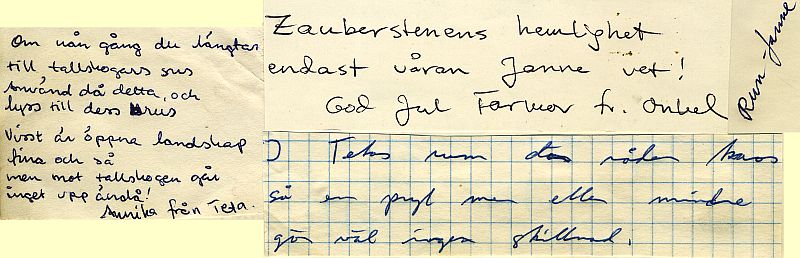 Om nån gång du längtar
till tallskogars sus
Använd då detta, och
lyss till dess brus
Visst är öppna landskap
fina och så
men mot tallskogen går
inget upp ändå!
Annika från Teta.
Zauberstenens hemlighet
endast våran Janne vet!
God Jul Farmor fr. Onkel
Rune - Janne
I Tetas rum där råder kaos
så en pryl mer eller mindre
gör väl ingen skillnad.